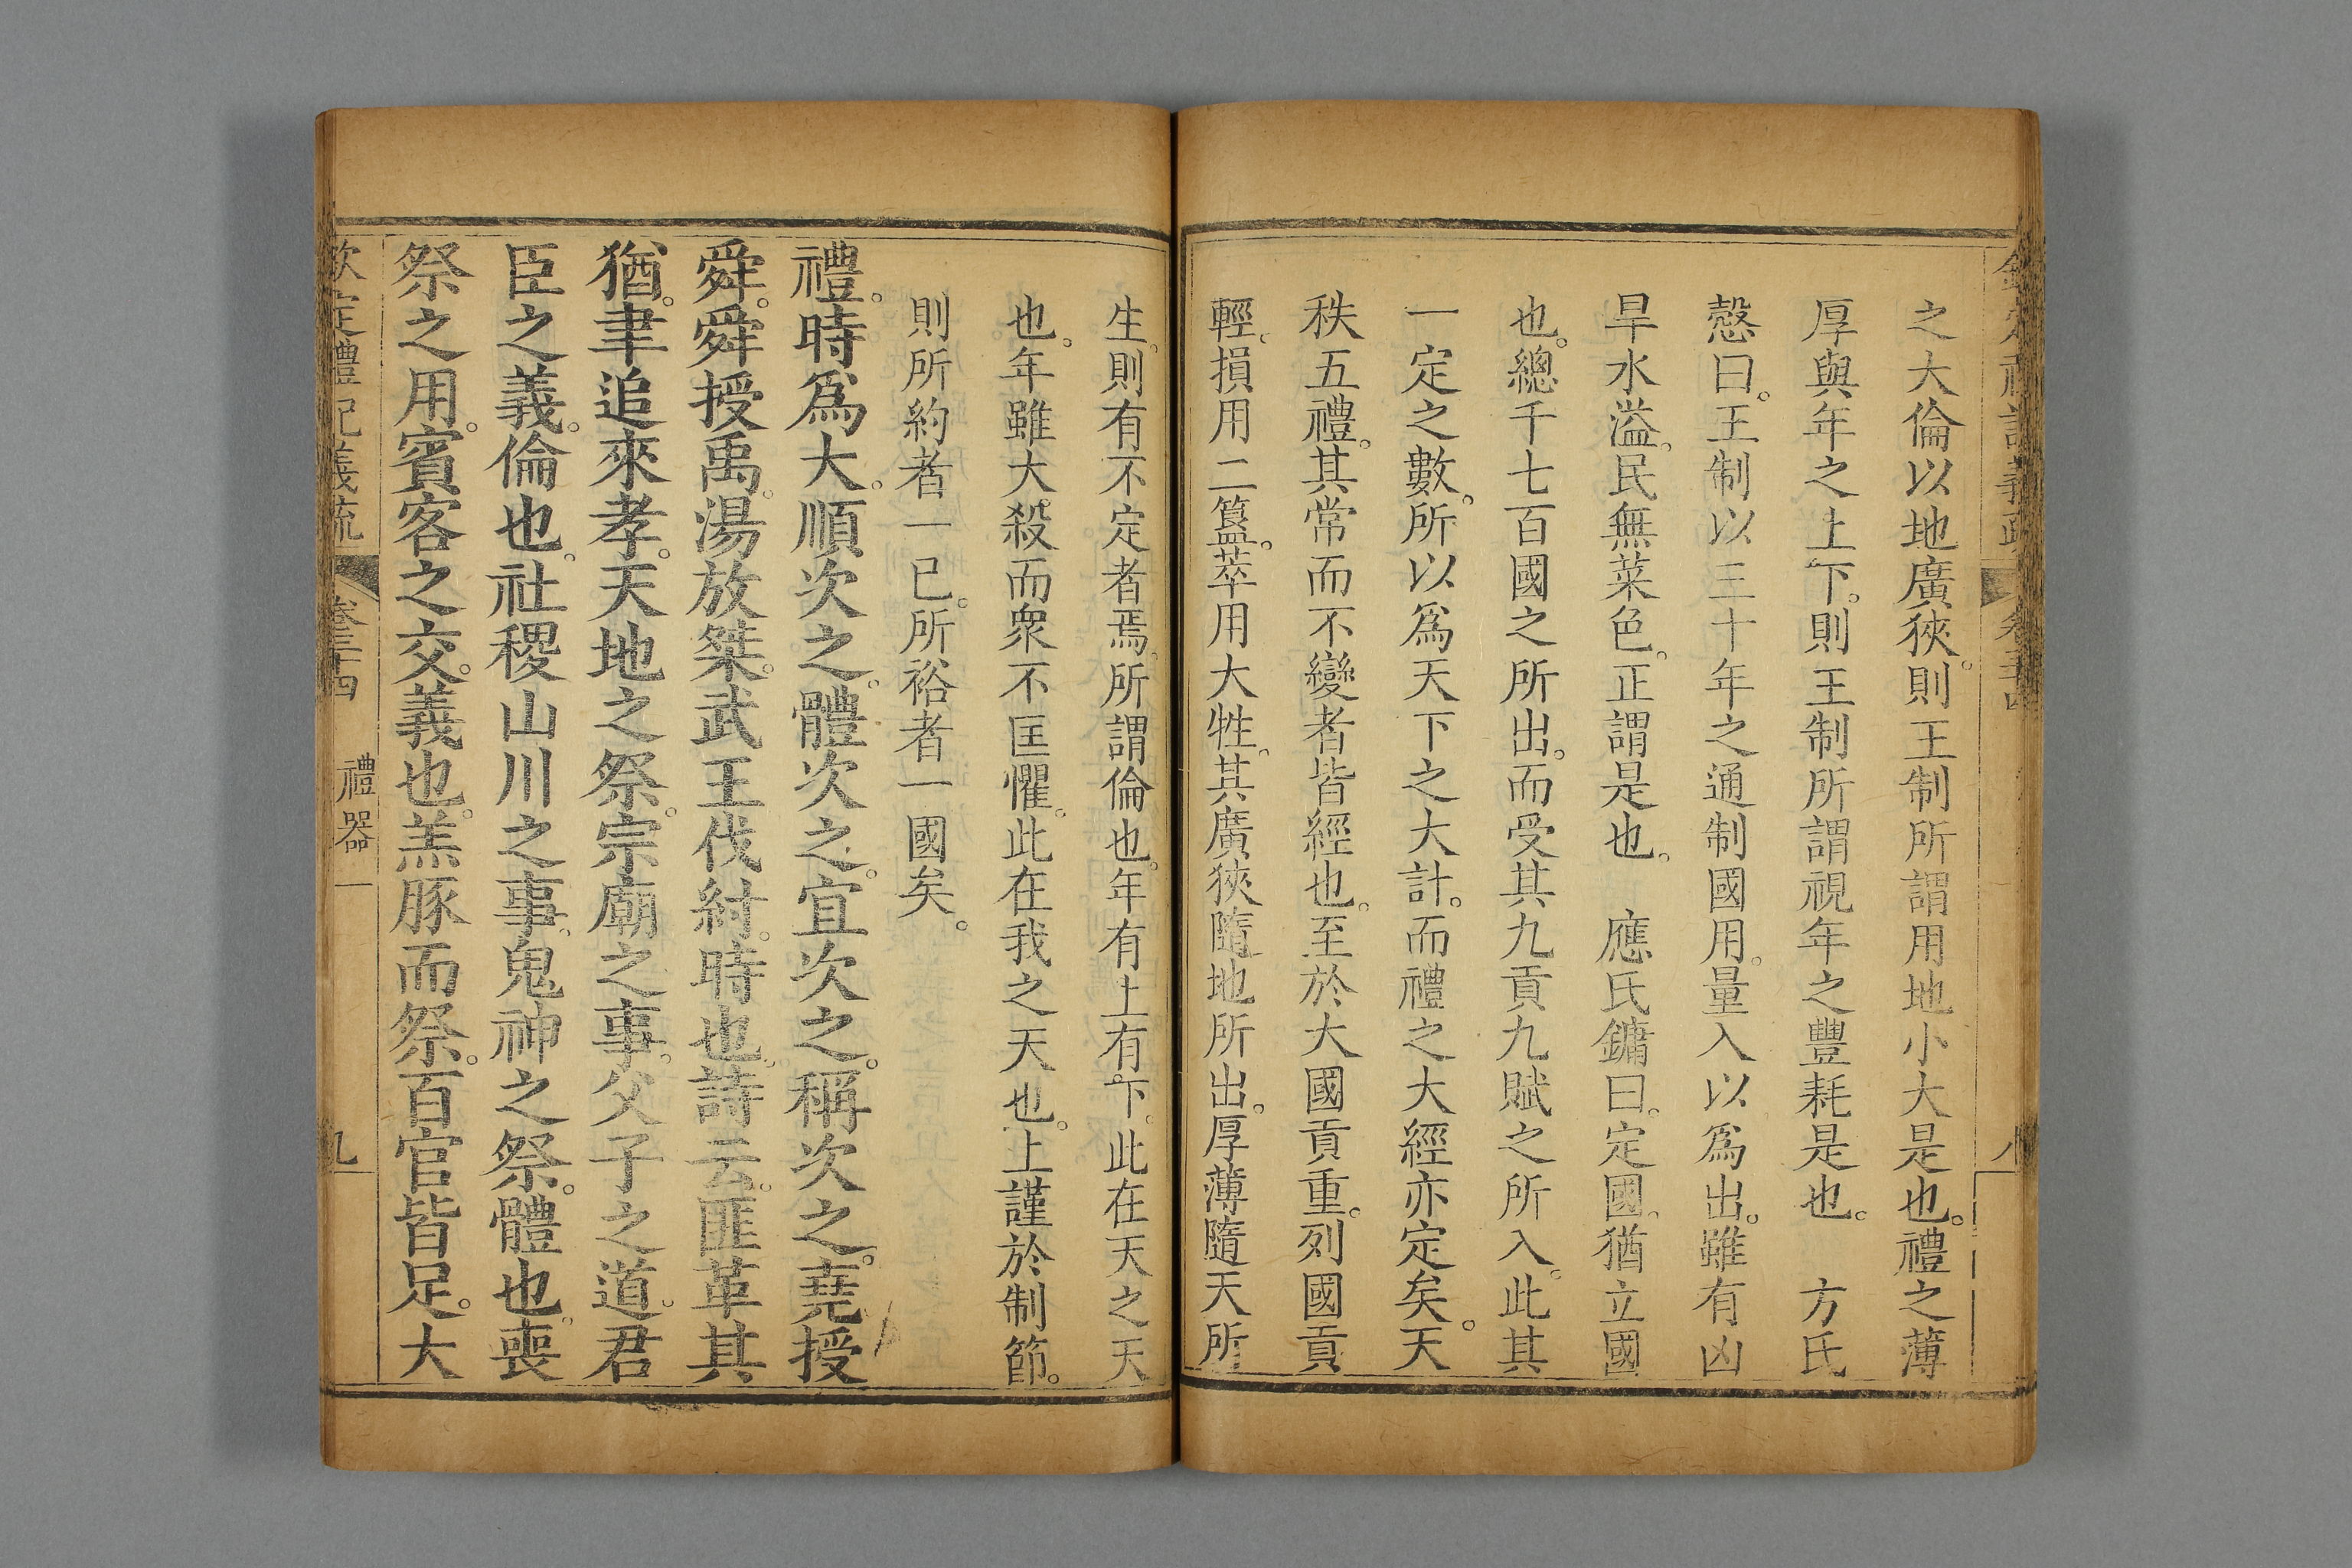 欽定禮記義疏 卷三十四 八
之大倫以地廣狹。則王制所謂用地小大是也。禮之薄
厚與年之上下。則王制所謂視年之豐耗是也。 方氏
慤曰。王制以三十年之通制國用。量入以爲出。雖有凶
旱水溢。民無菜色。正謂是也。 應氏鏞曰。定國。猶立國
也。總千七百國之所出。而受其九貢九賦之所入。此其
一定之數。所以爲天下之大計。而禮之大經亦定矣。天
秩五禮。其常而不變者皆經也。至於大國貢重。列國貢
輕。損用二簋。萃用大牲。其廣狹隨地所出。厚薄隨天所
生。則有不定者焉。所謂倫也。年有上有下。此在天之天
也。年雖大殺而衆不匡懼。此在我之天也。上謹於制節。
則所約者一已。所裕者一國矣。
禮。時爲大。順次之。體次之。宜次之。稱次之。堯授
舜。舜授禹。湯放桀。武王伐紂。時也。詩云。匪革其
猶。聿追來孝。天地之祭。宗廟之事。父子之道。君
臣之義。倫也。社稷山川之事。鬼神之祭。體也。喪
祭之用。賓客之交。義也。羔豚而祭。百官皆足。大
欽定禮記義疏 卷三十四 禮器 九